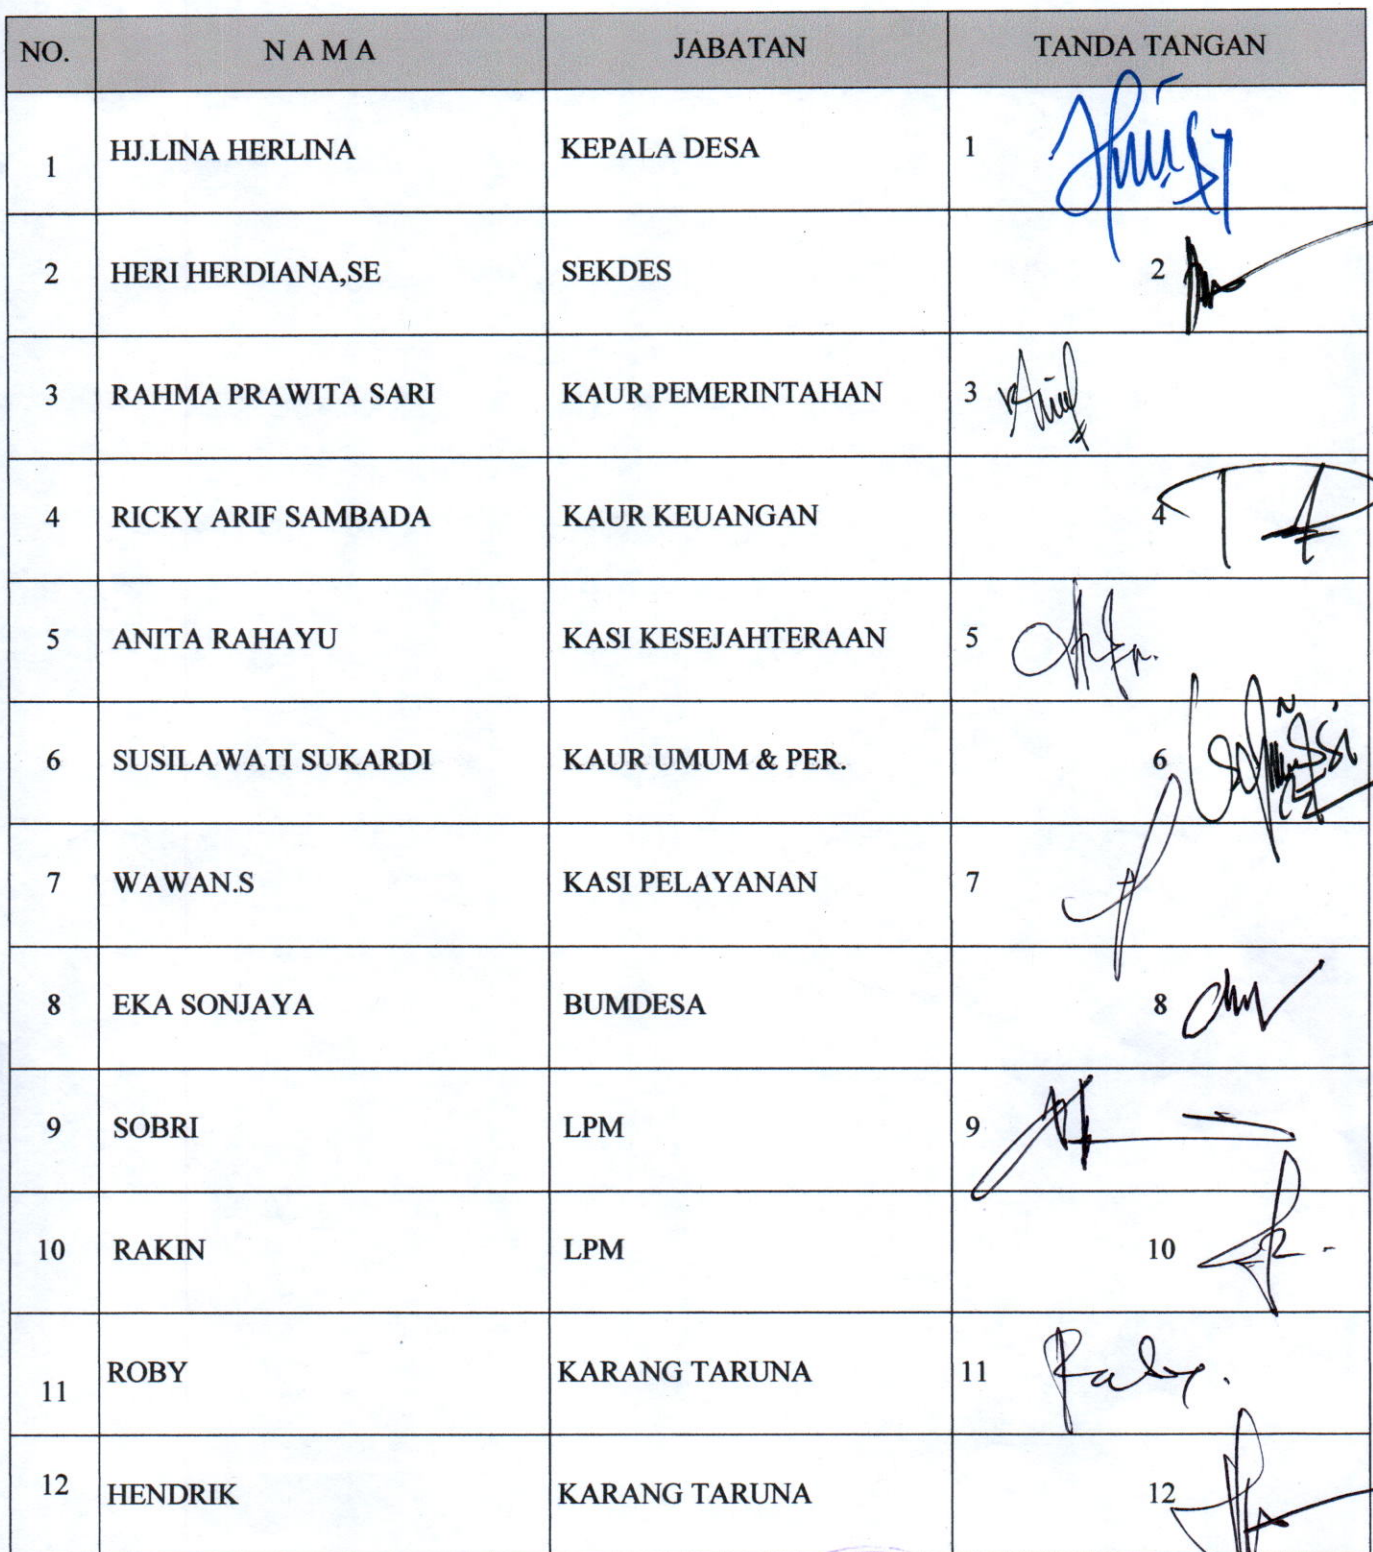 NO. N A M A JABATAN TANDA TANGAN
1 HJ.LINA HERLINA KEPALA DESA 1
2 HERI HERDIANA,SE SEKDES 2
3 RAHMA PRAWITA SARI KAUR PEMERINTAHAN 3
4 RICKY ARIF SAMBADA KAUR KEUANGAN 4
5 ANITA RAHAYU KASI KESEJAHTERAAN 5
6 SUSILAWATI SUKARDI KAUR UMUM & PER. 6
7 WAWAN.S KASI PELAYANAN 7
8 EKA SONJAYA BUMDESA 8
9 SOBRI LPM 9
10 RAKIN LPM 10
11 ROBY KARANG TARUNA 11
12 HENDRIK KARANG TARUNA 12